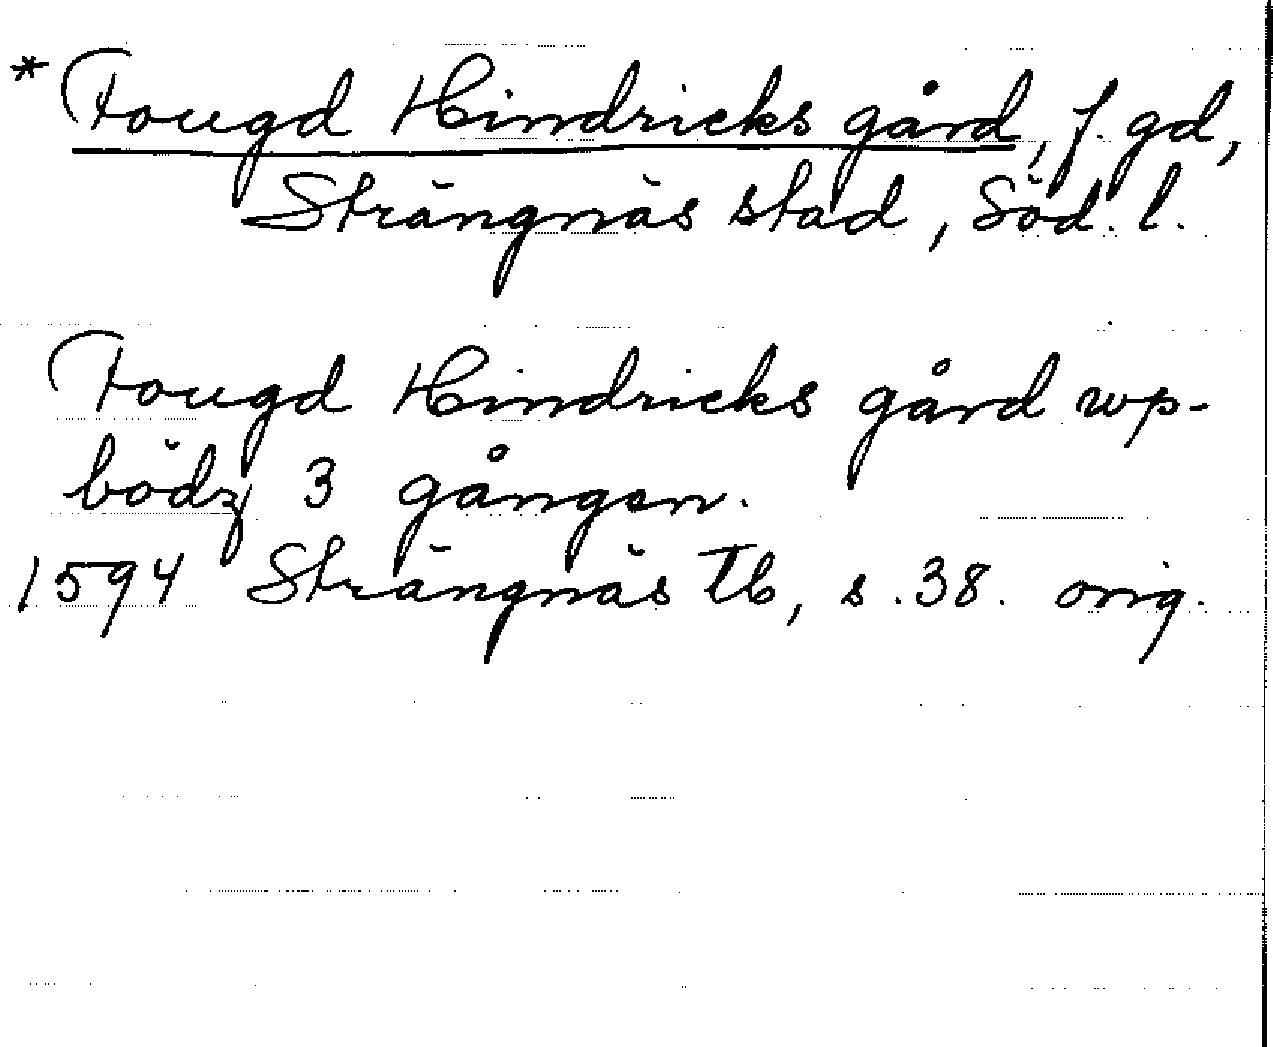 * Fougd Hindricks gård, f. gd,
Strängnäs stad, Söd. l.
Fougd Hindricks gård wp-
bödz 3 gången.
1594 Strängnäs Tb, s. 38. orig.